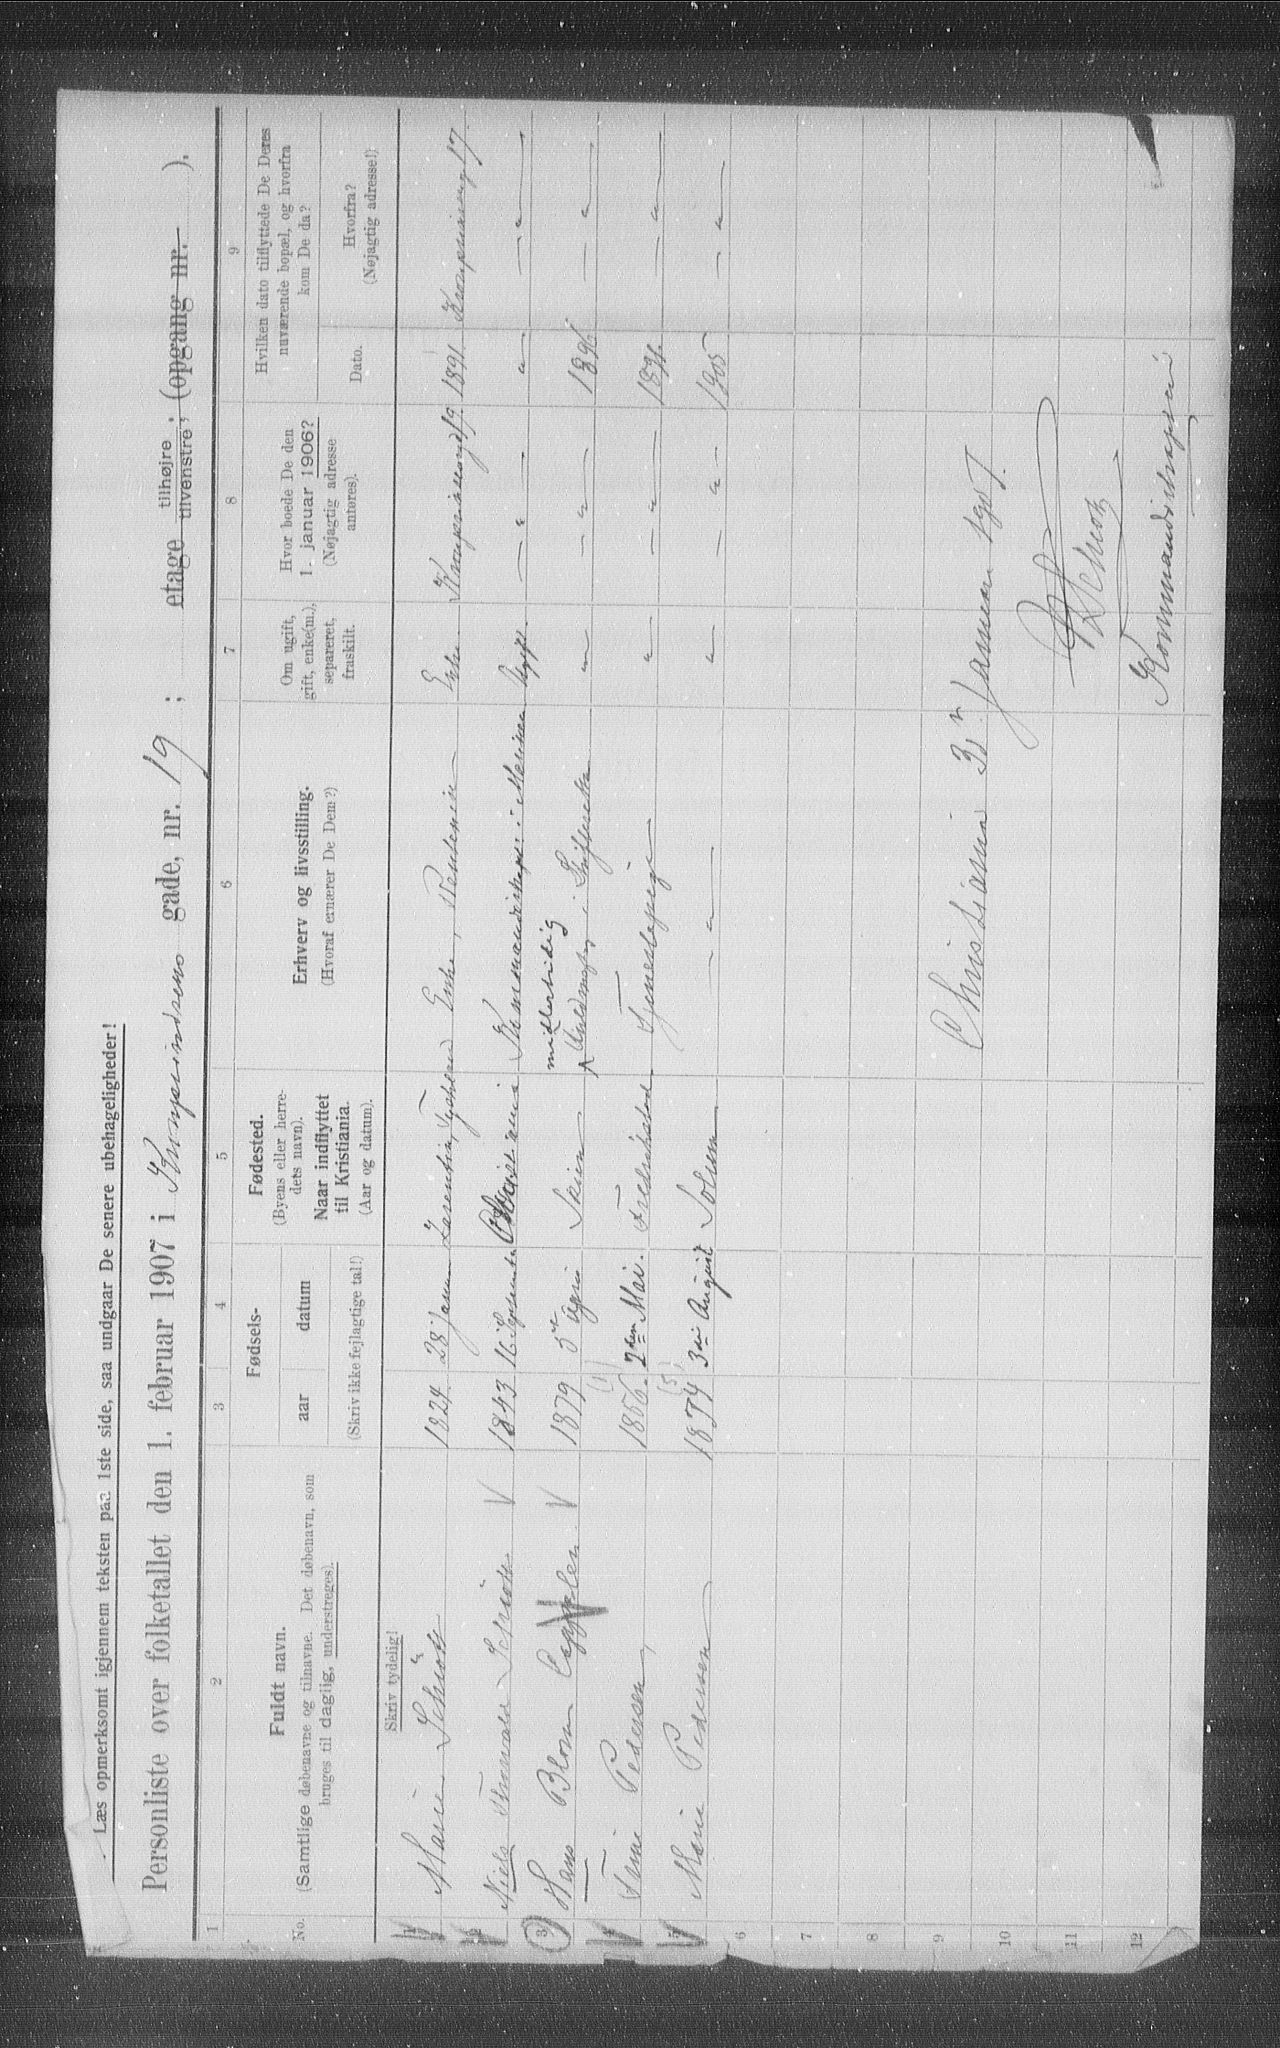 Læs opmerksomt igjennem teksten paa 1ste side, saa undgaar De senere ubehageligheder!
Personliste over folketallet den 1. februar 1907 i Kronprindsens gade, nr. 19 ; etage tilhøjre tilvenstre; (opgang nr. ).
1 2 3 4 5 6 7 8 9
No.
Fuldt navn.
(Samtlige døbenavne og tilnavne. Det døbenavn, som
bruges til daglig, understreges).
Fødsels-
aar datum
(Skriv ikke fejlagtige tal!)
Fødested.
(Byens eller herre-
dets navn).
Naar indflyttet
til Kristiania.
(Aar og datum).
Erhverv og livsstilling.
(Hvoraf ernærer De Dem?)
Om ugift,
gift, enke(m.),
separeret,
fraskilt.
Hvor boede De den
1. januar 1906?
(Nøjagtig adresse
anføres).
Hvilken dato tilflyttede De Deres
nuværende bopæl, og hvorfra
kom De da?
Dato.
Hvorfra?
(Nøjagtig adresse!)
Skriv tydelig!
1 Marie Schiött 1824 28 Januar Enke, Rentenier Enke 19 1891 17
2 Niels Schiött V 1843 16 September Christiania Kommandörkapt. i Marinen Ugift — " — "  — " —
3 Hans Blom Cappelen V 1879 5te Skien midlertidig i — " — " — 1896 — " —
4 Trine Pedersen 1856 (1) 2den Mai Fredrikstad Tjenestepige " — " — 1891 — " —
5 Marie Pedersen 1874 (5) 3die August Solum — " — " — " — 1905 — " —
6
7
8
9 Christiania 31 Januar 1907.
10
11 Schiött
12 Kommandörkaptein